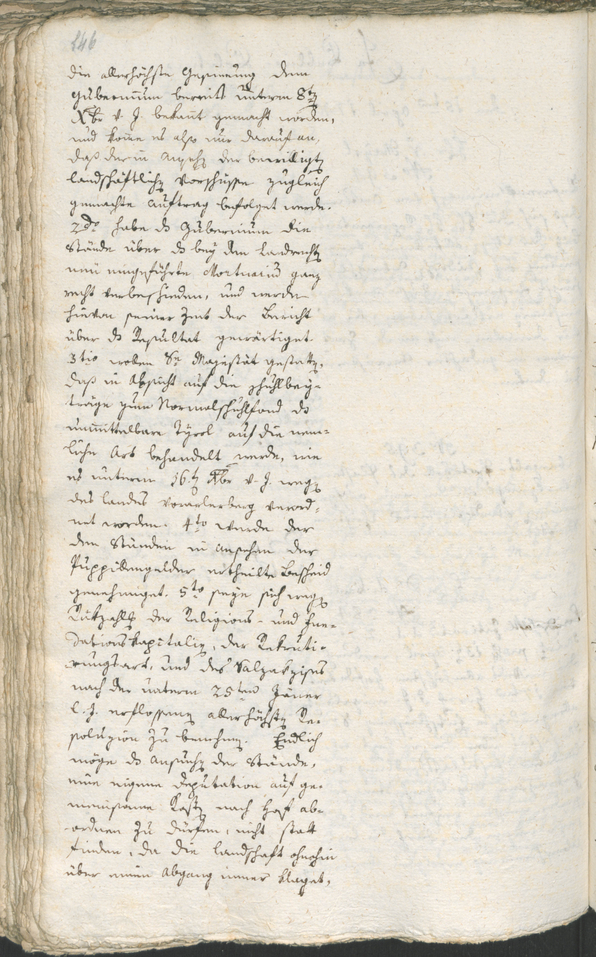 246
die allerhöchste Gesinnung dem
Gubernium bereits unterm 8t
Xbr v. J. bekant gemacht worden,
und kome es also nur darauf an,
daß der in Anseh der bewilligt
landschäftlich Vorschüsse zugleich
gemachte Auftrag befolget werde.
2do habe d Gubernium die
Stände über d bey dem Landrecht
neu eingeführte Mortuarium ganz
recht verbeschieden, und werde
hievon seiner Zeit der Bericht
über d Resultat gewärtiget.
3tio wollen Se Magistät gestatt,
daß in Absicht auf die Schulbey-
träge zum Normalschulfond d
unmittelbare Tyrol auf die nem-
liche Art behandelt werde, wie
es unterm 16t Xbr v. J. weg
des Landes Vorarlberg verord-
net worden. 4to wurde der
den Ständen in Ansehen der
Puppillengelder ertheilte Bescheid
genehmiget. 5to seye sich weg
Rükzahlg der Religions- und Fun-
dationskapitalien, der Rekruti-
rungsart, und des Salzakzises
nach der unterm 25ten Jäner
l. J. erflossenen allerhöchst Re-
soluzion zu benehmen. Endlich
möge d Ansuch der Stände,
eine eigene Deputation auf ge-
meinsame Kost nach Hof ab-
ordnen zu dürfen, nicht statt
finden, da die Landschaft ohnehin
über einen Abgang immer klaget,